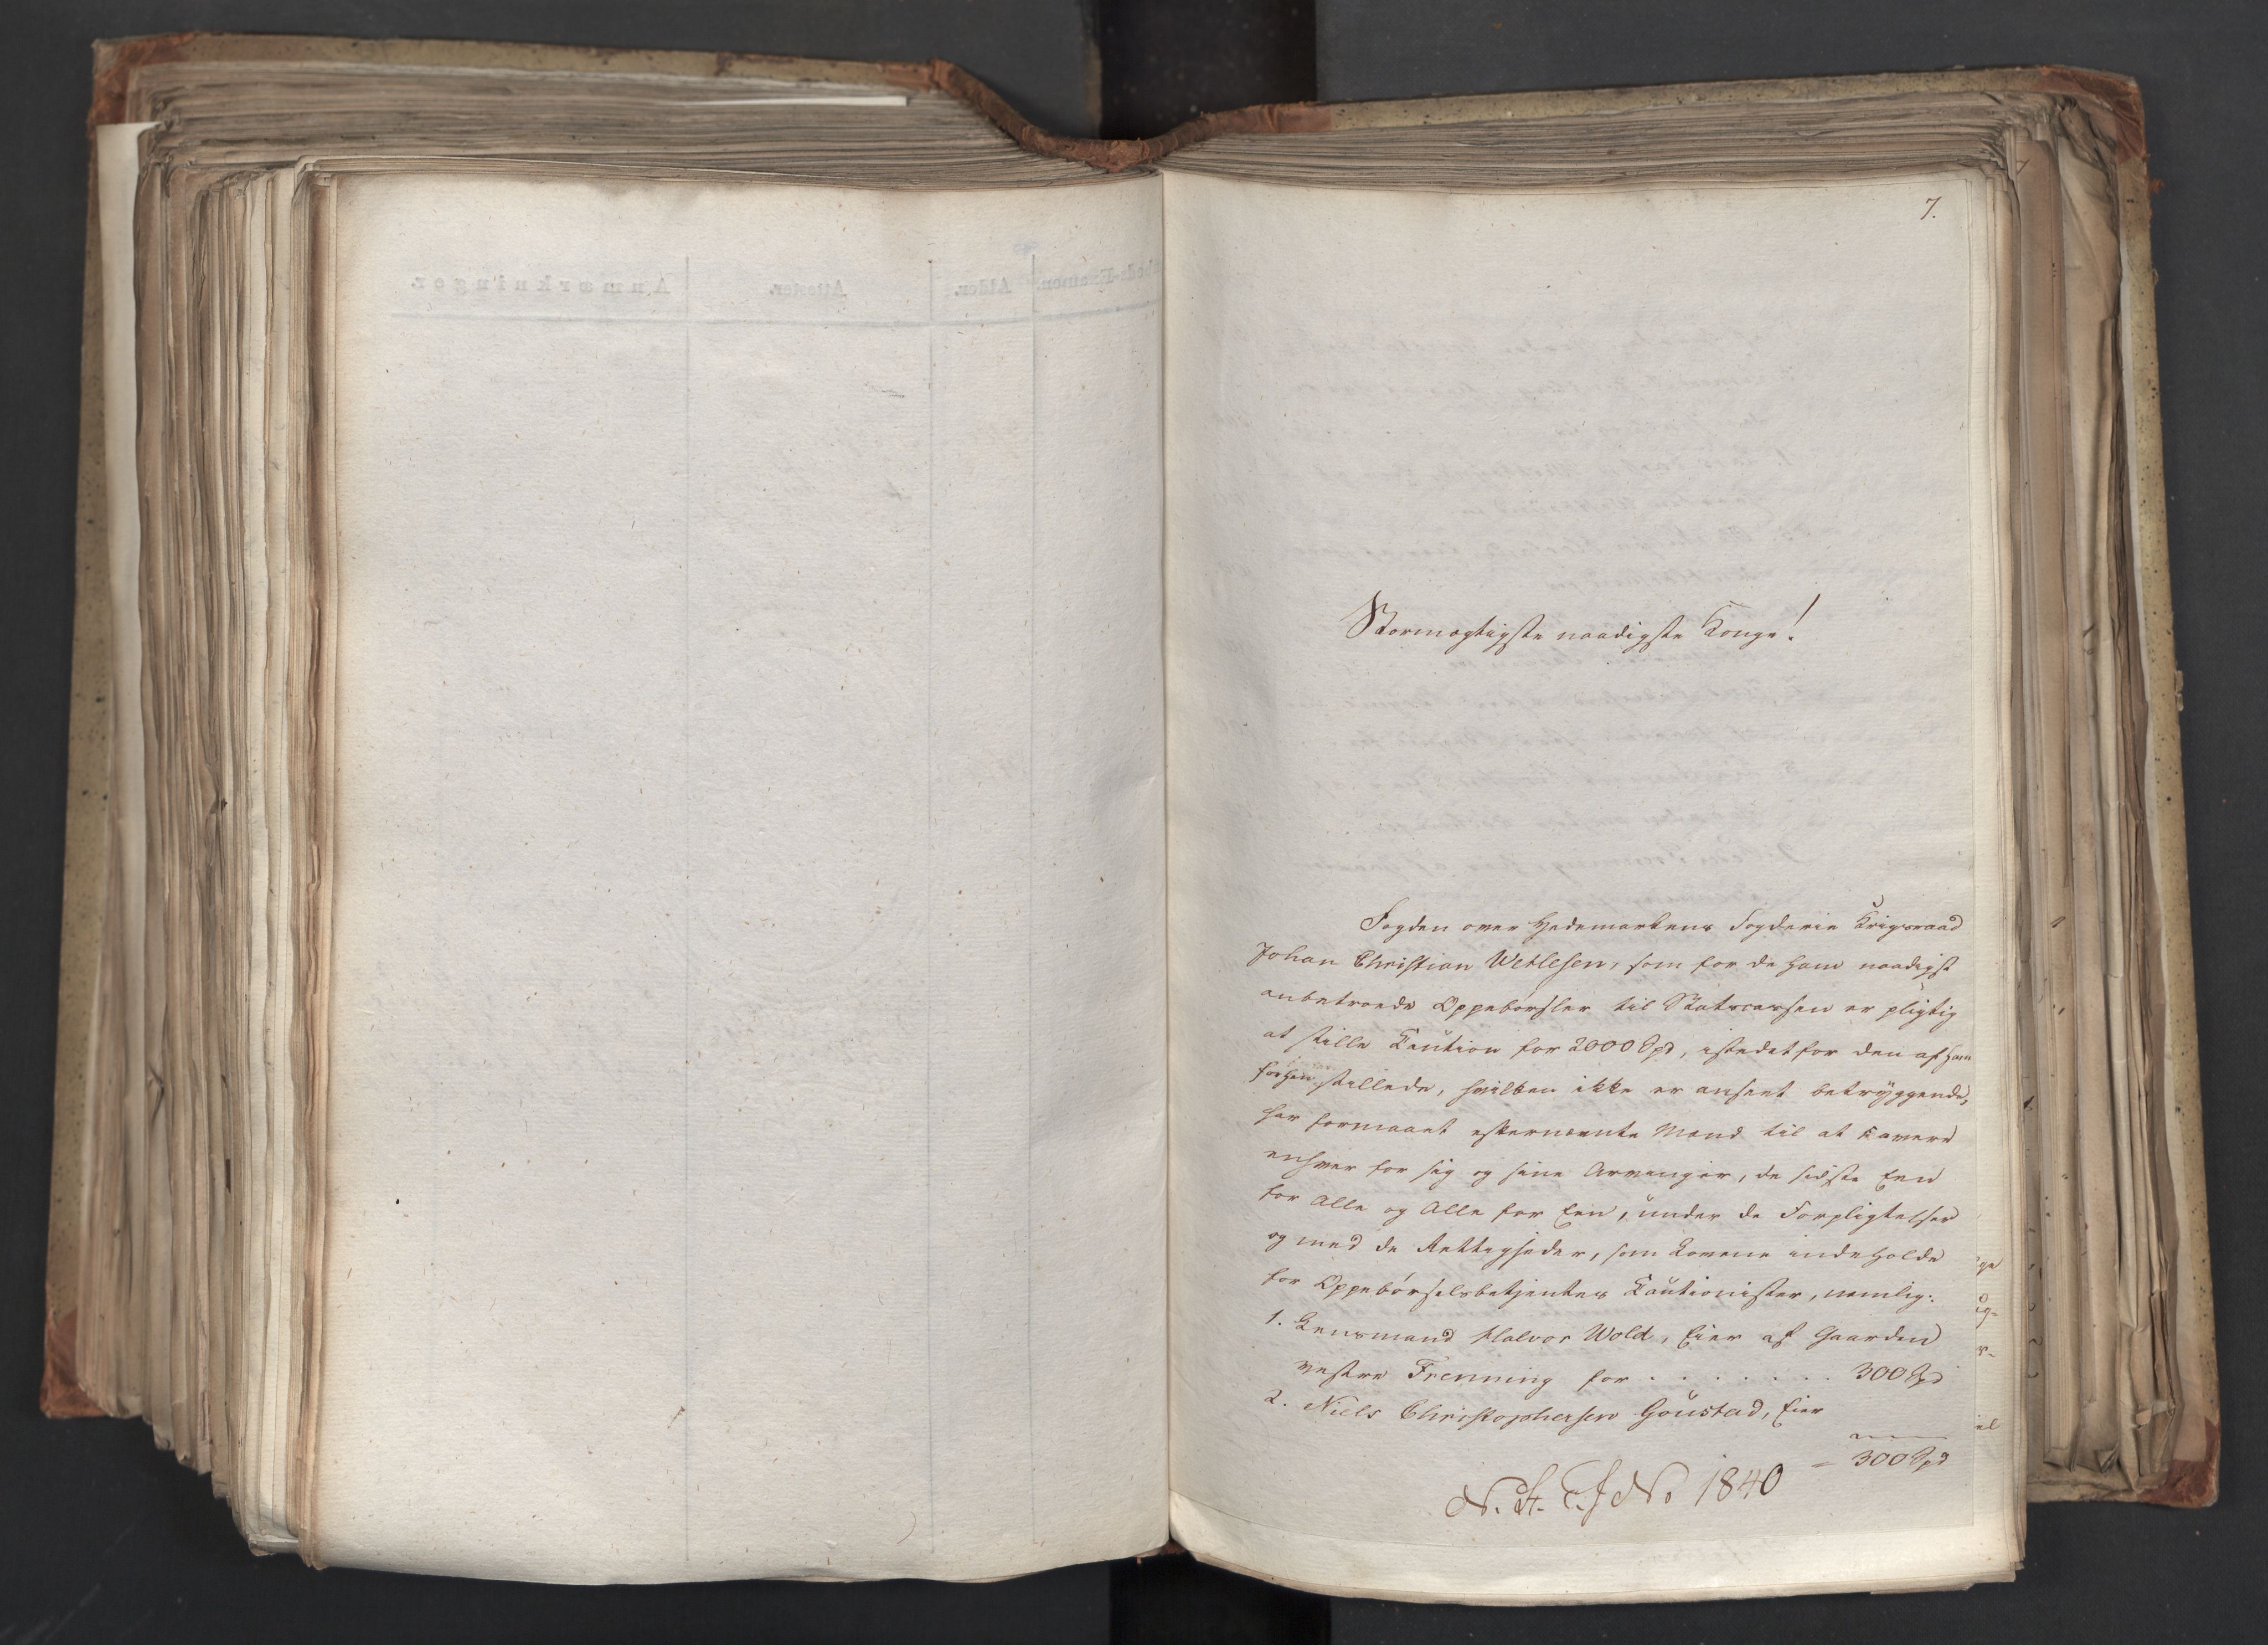 Anmærkninger.
Attester.
Alder.
7.
Stormægtigste naadigste Konge!
Fogden over Hedemarkens Fogderie Krigsraad
Johan Christian Wetlesen, som for de ham naadigst
anbetroede Oppebørsler til Statscassen er pligtig
at stille Caution for 2000 Spd, istedetfor den af ham
forhen stillede, hvilken ikke er anseet betryggende,
har formaaet efternævnte Mænd til at cavere
enhver for sig og sine Arvinger, de sidste Een
for Alle og Alle for Een, under de Forpligtelser
og med de Rettigheder, som Lovene indeholde
for Oppebørselsbetjentes Cautionister, nemlig:
1. Lensmand Halvor Wold, Eier af Gaarden
vestre Frenning for . . . . . . . 300 Spd
2. Niels Christophersen Goustad, Eier
300 Spd
N. St. C. J No 1840